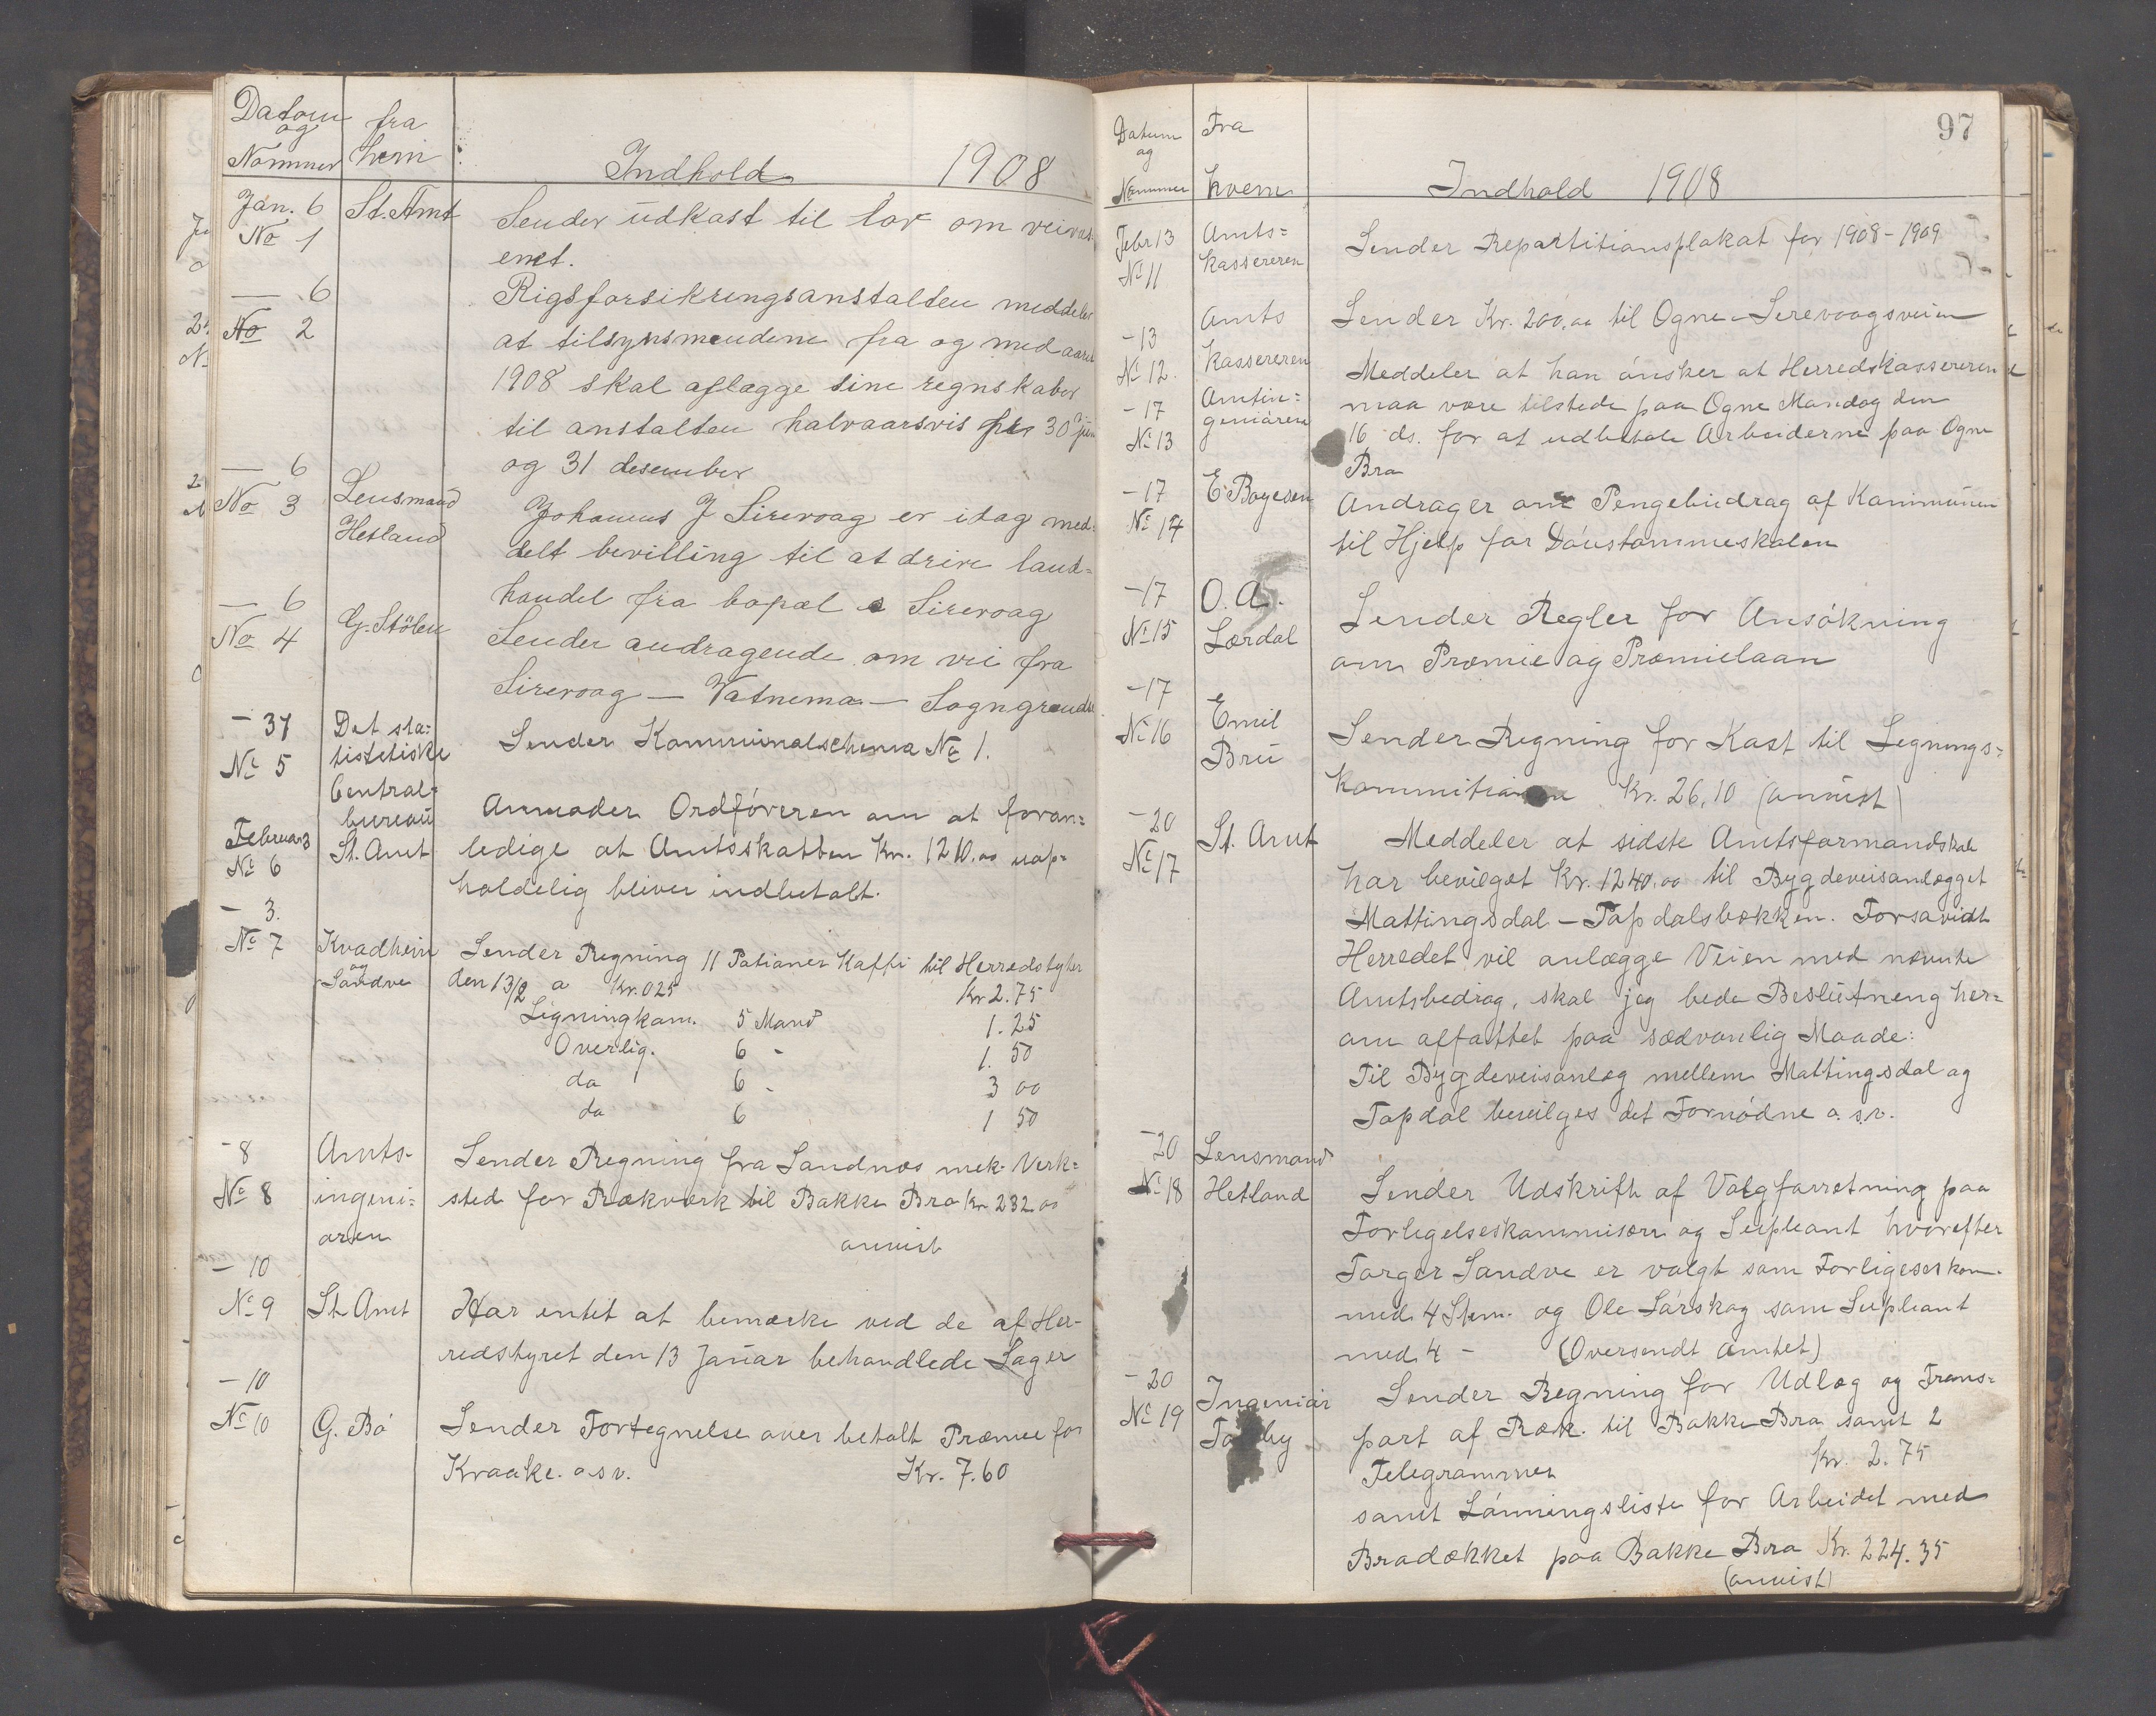 Datom
og
Nommer
fra
hvem
Indhold 1908
Jan. 6
No 1
St. Amt
Sender udkast til lov om veivæs-
enet.
— 6
No 2
Rigsforsikringsanstalten meddeler
at tilsynsmendene fra og med aaret
1908 skal aflægge sine regnskaber
til anstalten halvaarsvis pr 30 juni
og 31 desember
— 6
No 3
Lensmand
Hetland
Johannes J Sirevaag er idag med-
delt bevilling til at drive land-
handel fra bopæl Sirevaag
— 6
No 4
G. Stölen
Sender andragende om vei fra
Sirevaag — Vatnemo — Sogngrændse
— 31
No 5
Det sta-
tistetiske
Central-
bureau
Sender Kommunalschema No 1.
Februar 3
No 6
St. Amt
Anmoder Ordføreren om at foran=
ledige at Amtsskatten Kr. 1210.00 uop-
holdelig bliver indbetalt.
— 3.
No 7
Kvadheim
og
Sandve
Sender Regning 11 Potioner Kaffi til Herredstyret
den 13/2 a Kr. 025 Kr 2.75
Ligningkom. 5 Mand 1.25
Overlig. 6 - 1.50
do 6 - 3 00
do 6 1 50
- 8
No 8
Amts-
ingeni-
øren
Sender Regning fra Sandnæs mek. Verk=
sted for Rækværk til Bakke Bro Kr 232.00
anvist
— 10
No 9
St. Amt
Har intet at bemærke ved de af Her-
redstyret den 13 Januar behandlede Sager
— 10
No 10
G. Bø
Sender Fortegnelse over betalt Præmie for
Kraake. osv. Kr. 7.60
97
Datum
og
Nummer
Fra
hvem
Indhold 1908
Febr 13
No 11
Amts=
kassereren
Sender Repartitionsplakat for 1908-1909
-13
No 12.
Amts
kassereren
Sender Kr. 200.00 til Ogne-Serevaagsveien
-17
No 13
Amtin=
geniøren
Meddeler at han ønsker at Herredskassereren
maa være tilstede paa Ogne Mandag den
16 ds. for at udbetale Arbeiderne paa Ogne
Bro
-17
No 14
E Boyesen
Andrager om Pengebidrag af Kommunen
til Hjelp for Døvstommeskolen
-17
No 15
O. A.
Lærdal
Sender Regler for Ansøkning
om Premie og Præmielaan
-17
No 16
Emil
Bru
Sender Regning for Kost til Legnings=
kommitionen Kr. 26,10 (anvist)
-20
No 17
St. Amt
Meddeler at sidste Amtsformandskab
har bevilget Kr. 1240.00 til Bygdeveisanlægget
Mattingsdal - Tapdalsbækken. Forsavidt
Herredet vil anlægge Veien med nævnte
Amtsbedrag, skal jeg bede Beslutneng her=
om affattet paa sædvanlig Maade:
Til Bygdeveisanlæg mellem Mattingsdal og
Tapdal bevilges det Fornødne o. s. v.
-20
No 18
Lensmand
Hetland
Sender Udskrift af Valgforretning paa
Forligelseskommisær og Supleant hvorefter
Torger Sandve er valgt som Forligeseskom-
med 4 Stem. og Ole Sørskog som Supleant
med 4 - (Oversendt Amtet)
-20
No 19
Ingeniør
Sender Regning for Udlæg og Trans=
port af Ræk. til Bakke Bro samt 2
Telegrammer Kr. 2.75
samt Lønningsliste for Arbeidet med
Brodækket paa Bakke Bro Kr. 224.35
(anvist)